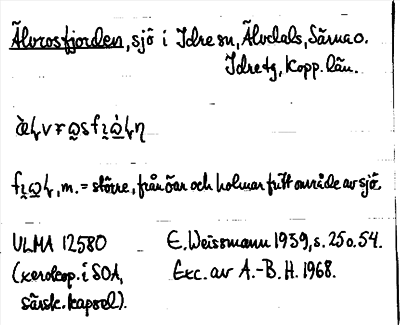 Älvrosfjorden, sjö i Idre sn, Älvdals, Särna o.
Idre tg, Kopp. län.
m. = större, från öar och holmar fritt område av sjö.
ULMA 12580 E. Weissmann 1939, s. 25 o. 54.
(xerokop. i SOA, Exc. av A.-B. H. 1968.
särsk. kapsel).